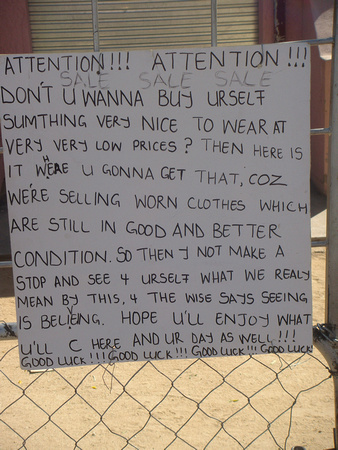 ATTENTION!!! ATTENTION!!!
SALE SALE SALE
DON'T U WANNA BUY URSELF
SUMTHING VERY NICE TO WEAR AT
VERY VERY LOW PRICES? THEN HERE IS
IT WHERE U GONNA GET THAT, COZ
WE'RE SELLING WORN CLOTHES WHICH
ARE STILL IN GOOD AND BETTER
CONDITION. SO THEN Y NOT MAKE A
STOP AND SEE 4 URSELF WHAT WE REALY
MEAN BY THIS, 4 THE WISE SAYS SEEING
IS BELIEVING. HOPE U'LL ENJOY WHAT
U'LL C HERE AND UR DAY AS WELL!!!
GOOD LUCK!!! GOOD LUCK!!! GOOD LUCK!!! GOOD LUCK!